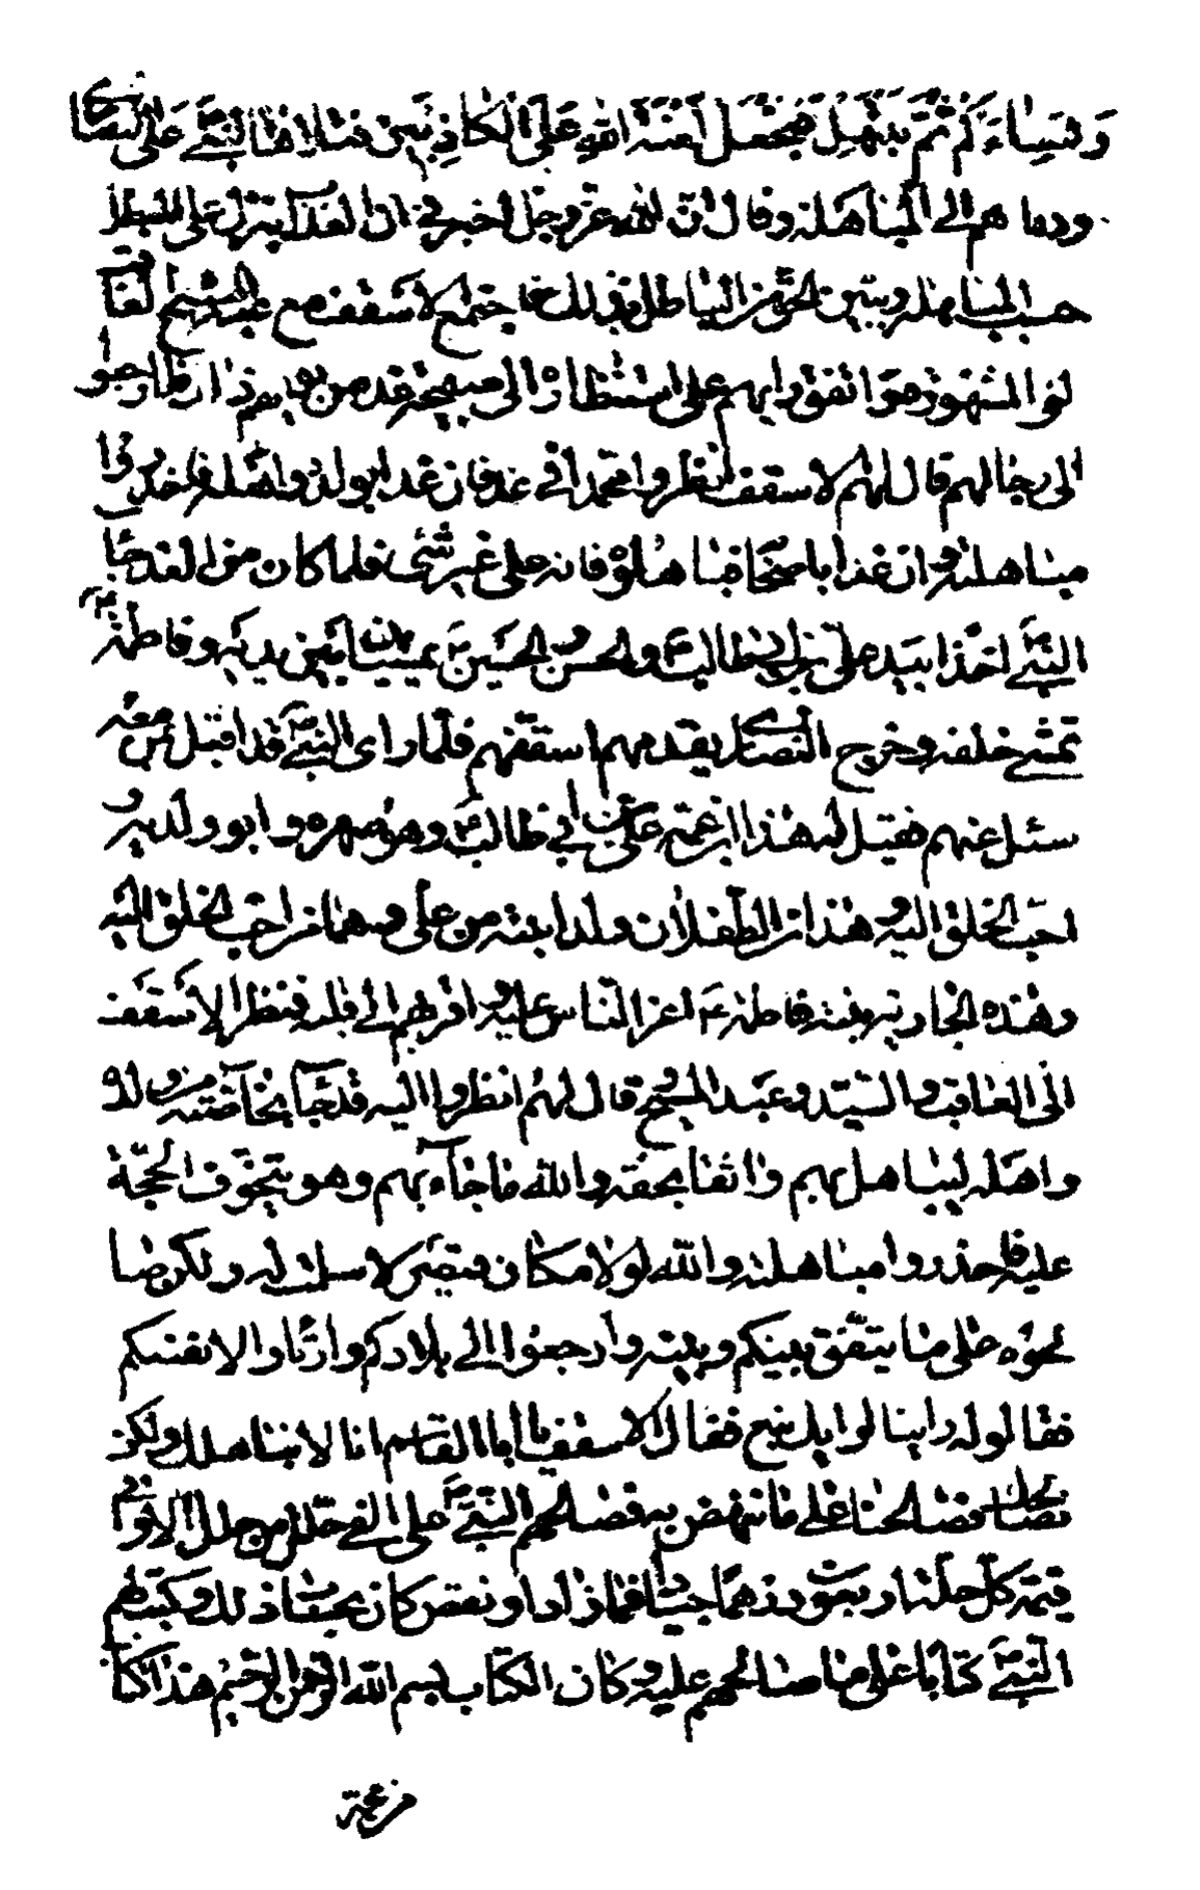 وَنِسٰاءَكُمْ ثُمَّ نَبْتَهِلْ فَنَجْعَلْ لَعْنَةَ اللّٰهِ عَلَى الْكٰاذِبِينَ فتلاها النبيّ ص على النصارى
ودعاهم الى المباهلة وقال ان الله عزوجل اخبرني ان العذاب ينزل على المبطل
عقيب المباهلة ويبين الحق من الباطل بذلك فاجتمع الاسقف مع عبد المسيح والعاقب
على المشهورة واتفق رايهم على استنظاره الى صبيحة غد من يومهم ذلك فلما رجعوا
الى رجالهم قال لهم الاسقف انظروا محمدا في غد فان غدا بولده واهله فاحذروا
مباهلته وان غدا باصحابه فباهلوه فانه على غير شئ فلما كان من الغد جاء
النبيّ ص اخذا بيد علي بن ابي طالب ع والحسن والحسين ع يمشيان بين يديه وفاطمة ع
تمشي خلفه وخرج النصارى يقدمهم اسقفهم فلما راى النبيّ ص قد اقبل بمن معه
سئل عنهم فقيل له هذا ابن عمه علي بن ابي طالب ع وهو صهره وابو ولديه و
احب الخلق اليه وهذان الطفلان ولدا بنته من علي وهما من احب الخلق اليه
وهذه الجارية بنته فاطمة ع اعز الناس عليه واقربهم الى قلبه فنظر الاسقف
الى العاقب والسيد وعبد المسيح وقال لهم انظروا اليه قد جاء بخاصته من ولده
واهله ليباهل بهم واثقا بحقه والله ما جاء بهم وهو يتخوف الحجة
عليه فاحذروا مباهلته والله لولا مكان قيصر لاسلمت له ولكن صا
لحوه على ما يتفق بينكم وبينه وارجعوا الى بلادكم وارتاوا لانفسكم
فقالوا له راينا لرايك تبع فقال الاسقف يا ابا القاسم انا لا نباهلك ولكن
نصالحك فصالحنا على ما ننهض به فصالحهم النبيّ ص على الفي حلة من حلل الاواقي
قيمة كل حلة اربعون درهما جيادا فما زاد او نقص كان بحساب ذلك وكتب لهم
النبيّ ص كتابا على ما صالحهم عليه وكان الكتاب بسم الله الرحمن الرحيم هذا كتاب
من محمد